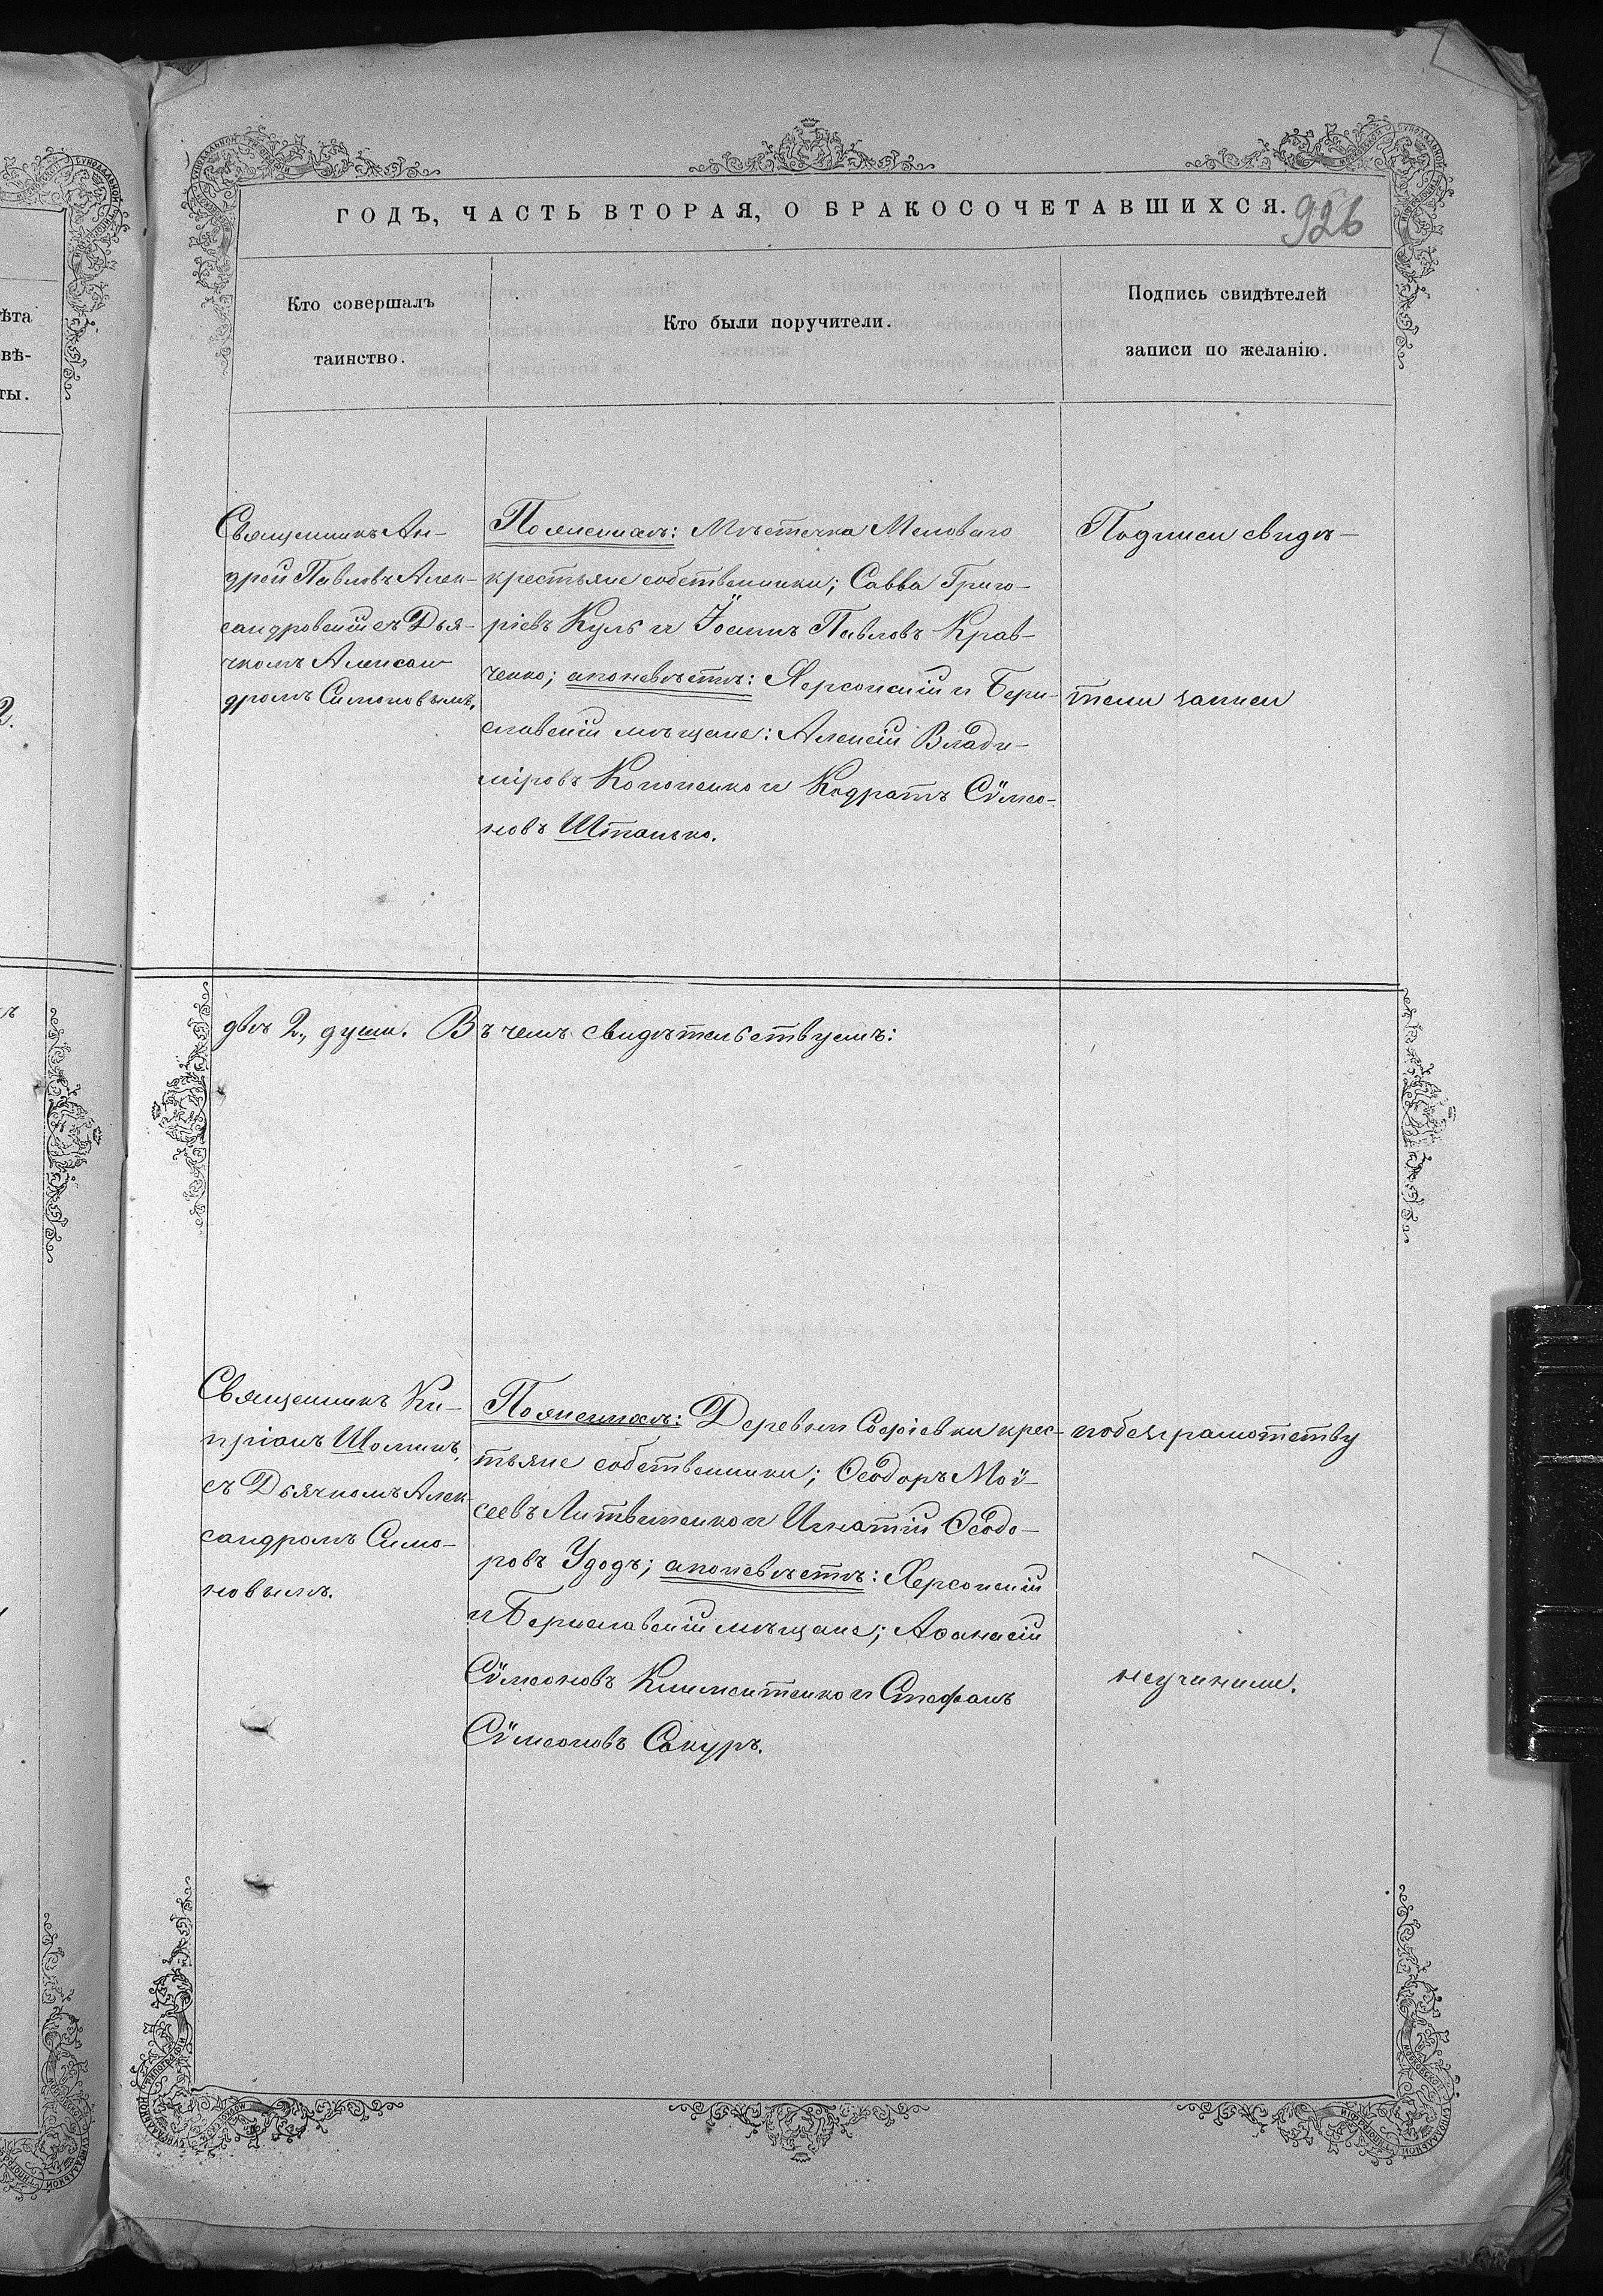 ГОДЪ, ЧАСТЬ ВТОРАЯ, О БРАКОСОЧЕТАВШИХСЯ.
926
Кто совершалъ
таинство.
Кто были поручители.
Подпись свидѣтелей
записи по желанію.
Священникъ Ан-
дрей Павловъ Алек-
сандровскій съ Дья-
чкомъ Алексан
дромъ Симоновымъ.
По женихѣ: Мѣстечка Меловаго
крестьяне собственники; Савва Григо-
ріевъ Куль и Іосипъ Павловъ Крав-
ченко; а по невѣстѣ: Херсонскій и Бери-
славскій мѣщане: Алексій Влади-
міровъ Кононенко и Кодратъ Сѵмео-
новъ Штанько.
Подписи свидѣ-
тели записи
двѣ 2, души. Въ чемъ свидѣтельствуемъ:
Священникъ Ки-
пріанъ Шоминъ,
съ Дьячкомъ Алек-
сандромъ Симо-
новымъ.
По женихѣ: Деревни Софіевки крес-
тьяне собственники; Ѳеодоръ Мой-
сеевъ Литвиненко и Игнатій Ѳеодо-
ровъ Удодъ; а по невѣстѣ: Херсонскій
и Бериславскій мѣщане; Аѳанасій
Сѵмеоновъ Климентенко и Стефанъ
Сѵмеоновъ Сокуръ.
по безграмотству
неучинили.
ѣта
вѣ-
ты.
2.